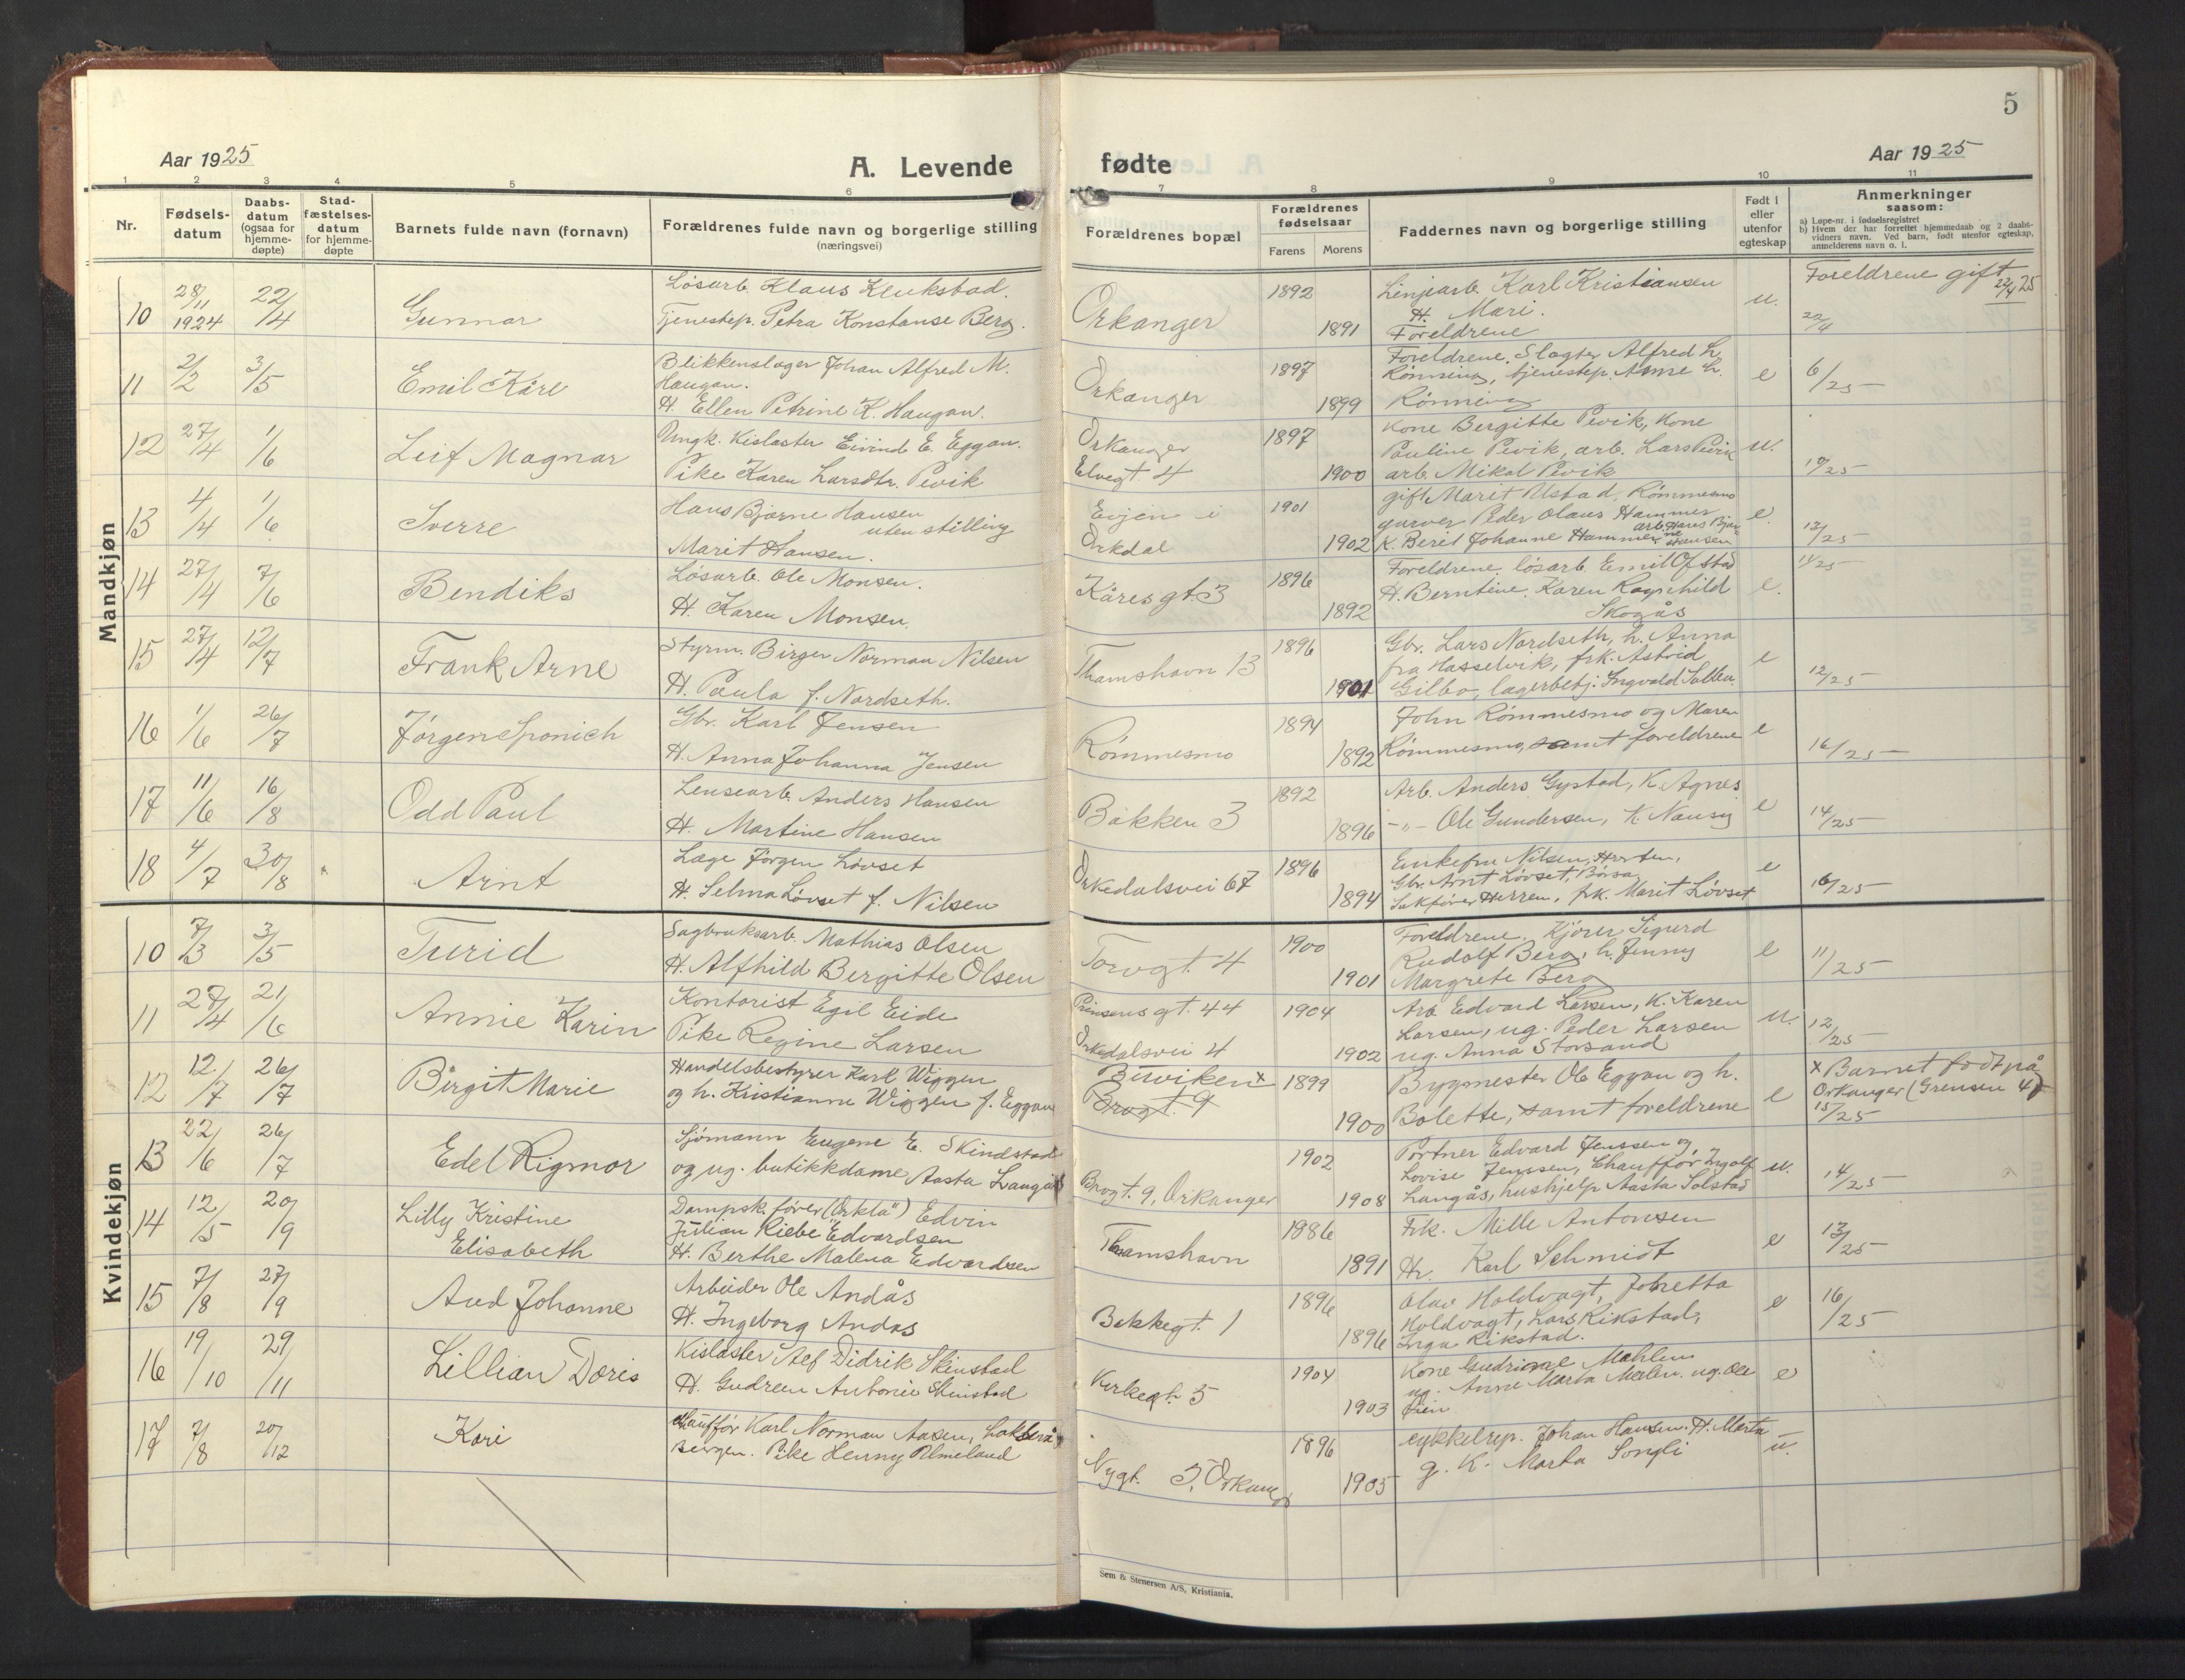 5
Aar 1925
A. Levende fødte
Aar 1925
1 2 3 4 5 6 7 8 9 10 11
Nr.
Fødsels-
datum
Daabs-
datum
(ogsaa for
hjemme-
døpte)
Stad-
fæstelses-
datum
for hjemme-
døpte
Barnets fulde navn (fornavn)
Forældrenes fulde navn og borgerlige stilling
(næringsvei)
Forældrenes bopæl
Forældrenes
fødselsaar
Farens Morens
Faddernes navn og borgerlige stilling
Født i
eller
utenfor
egteskap
Anmerkninger
saasom:
a) Løpe-nr. i fødselsregistret
b) Hvem der har forrettet hjemmedaab og 2 daabs-
vidners navn. Ved barn, født utenfor egteskap,
anmelderens navn o. l.
Mandkjøn
10 28/11 1924 22/4 Gunnar
Løsarb. Klaus Klukstad.
Tjenestep. Petra Konstanse Berg.
Orkanger 1892 1891
Linjearb. Karl Kristiansen
H. Mari.
Foreldrene
u.
Foreldrene gift 22/4 25
22/4
11 2/2 3/5 Emil Kåre
Blikkenslager Johan Alfred M.
Haugan.
H. Ellen Petrine K. Haugan.
Orkanger 1897 1899
Foreldrene, Slagter Alfred L.
Rønning, tjenestep. Anne L.
Rønning
e 6/25
12 27/4 1/6 Leif Magnar
Ungk. Kislaster Eivind E. Eggan.
Pike Karen Larsdtr. Pevik
Orkanger
Elvegt 4
1897 1900
Kone Bergitte Pevik, Kone
Pauline Pevik, arb. Lars Pevik
arb. Mikal Pevik
u. 10/25
13 4/4 1/6 Sverre
Hans Bjarne Hansen
uten stilling
Marit Hansen.
Evjen i
Orkdal
1901 1902
gift Marit Ustad, Rømmesmo
garver Peder Olaus Hammer
K. Berit Johanne Hammer, arb. Hans Bjarne Hansen
e. 12/25
14 27/4 7/6 Bendiks
Løsarb. Ole Monsen.
H. Karen Monsen.
Kåresgt. 3 1896 1892
Foreldrene, løsarb. Emil Ofstad
H. Berntine, Karen Ragnhild
Skogås
e. 11/25
15 27/4 12/7 Frank Arne
Styrm. Birger Norman Nilsen
H. Paula f. Nordseth.
Thamshavn 13 1896 1901
Gbr. Lars Nordseth, h. Anna
fra Hasselvik, frk. Astrid
Gilbo, lagerbetj. Ingvald
e 12/25
16 1/6 26/7 Jørgen
Gbr. Karl Jensen
H. Anna Johanna Jensen
Rømmesmo 1894 1892
John Rømmesmo og Maren
Rømmesmo, samt foreldrene
e 16/25
17 11/6 16/8 Odd Paul
Lensearb. Anders Hansen
H. Martine Hansen
Bakken 3 1892 1896
Arb. Anders Gystad, K. Agnes
-"- Ole Gundersen, K. Nansy
e 14/25
18 4/7 30/8 Arnt
Læge Jørgen Løvset
H. Selma Løvset f. Nilsen
Orkedalsvei 67 1896 1894
Enkefru Nilsen, Horten,
Gbr. Arnt Løvset, Børsa,
Sakfører Herrem, frk. Marit Løvset
e 16/25
Kvindekjøn
10 7/3 3/5 Turid
Sagbruksarb. Mathias Olsen
H. Alfhild Bergitte Olsen
Torvgt. 4 1900 1901
Foreldrene, Kjører Sigurd
Rudolf Berg, h. Jenny
Margrete Berg
e 11/25
11 27/4 21/6 Annie Karin
Kontorist Egil Eide
Pike Regine Larsen
Prinsensgt. 44
Orkedalsvei 4
1904 1902
Arb. Edvard Larsen, K. Karen
Larsen, ug. Peder Larsen
ug. Anna Storsand
u. 12/25
12 12/7 26/7 Birgit Marie
Handelsbestyrer Karl Wiggen
og h. Kristianne Wiggen f. Eggan
Buviken x
Brogt. 9
1899 1900
Bygmester Ole Eggan og h.
Bolette, samt foreldrene
e
x Barnet født på
Orkanger (Grensen 4)
15/25
13 22/6 26/7 Edel Rigmor
Sjømann Eugene E. Skindstad
og ug. butikkdame Aasta Langås
Brogt. 9, Orkanger 1902 1908
Portner Edvard Jenssen og
Lovise Jenssen, Chauffør Ingolf
Langås, hushjelp Aasta Solstad
u. 14/25
14 12/5 20/9 Lilly Kristine
Elisabeth
Dampsk. fører ("Orkla") Edvin
Julian Riebe Edvardsen
H. Berthe Malena Edvardsen
Thamshavn 1886 1891
Frk. Mille Antonsen
Hr. Karl Schmidt
e 13/25
15 7/8 27/9 Aud Johanne
Arbeider Ole Andås
H. Ingeborg Andås
Bekkegt. 1 1896 1896
Olav Holdvagt, Joretta
Holdvagt, Lars Rikstad,
Inga Rikstad.
e 16/25
16 19/10 29/11 Lillian Doris
Kislaster Alf Didrik Skinstad
H. Gudrun Antonie Skinstad
Kirkegt. 5 1904 1903
Kone Gudrune Mahlum
ug. Anne Marta Melen. ug. Ole
Øien
e
17 7/8 20/12 Kari
Chauffør Karl Norman Aasen,
Bergen. Pike Henny Olmeland
Nygt. 7, Orkanger 1896 1905
Cykkelrep. Johan Hansen. H. Marta
g. K. Marta Songli
u.
Sem & Stenersen A/S, Kristiania.